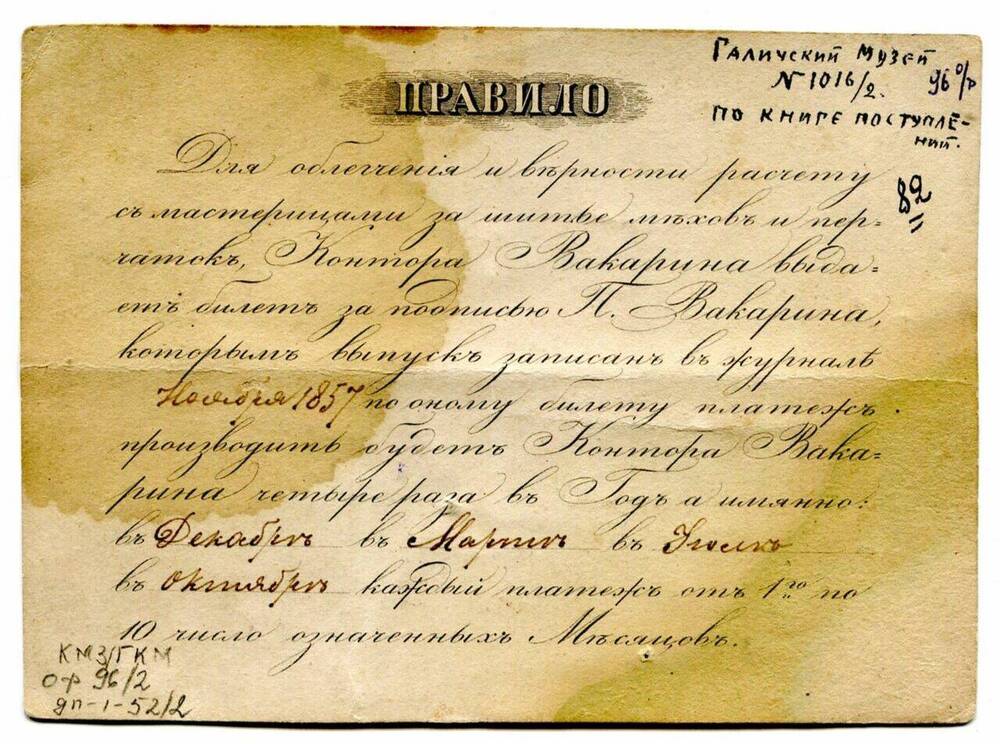 Галичский музей
N 1016/2. 96 о/ф
по книге поступле-
ний.
82
ПРАВИЛО
Для облегченія и вѣрности расчету
съ мастерицами за шитье мѣховъ и пер=
чатокъ, Контора Вакарина выда=
етъ билетъ за подписью П. Вакарина,
которымъ выпускъ записанъ въ журналѣ
Ноября 1857 по оному билету платежъ
производить будетъ Контора Вака=
рина четыре раза въ Годъ а имянно:
въ Декабрѣ въ Мартѣ въ Іюлѣ
въ Октябрѣ каждый платежъ отъ 1го по
10 число означенныхъ Мѣсяцовъ.
КМЗ/ГКМ
оф 96/2
дп-I-52/2